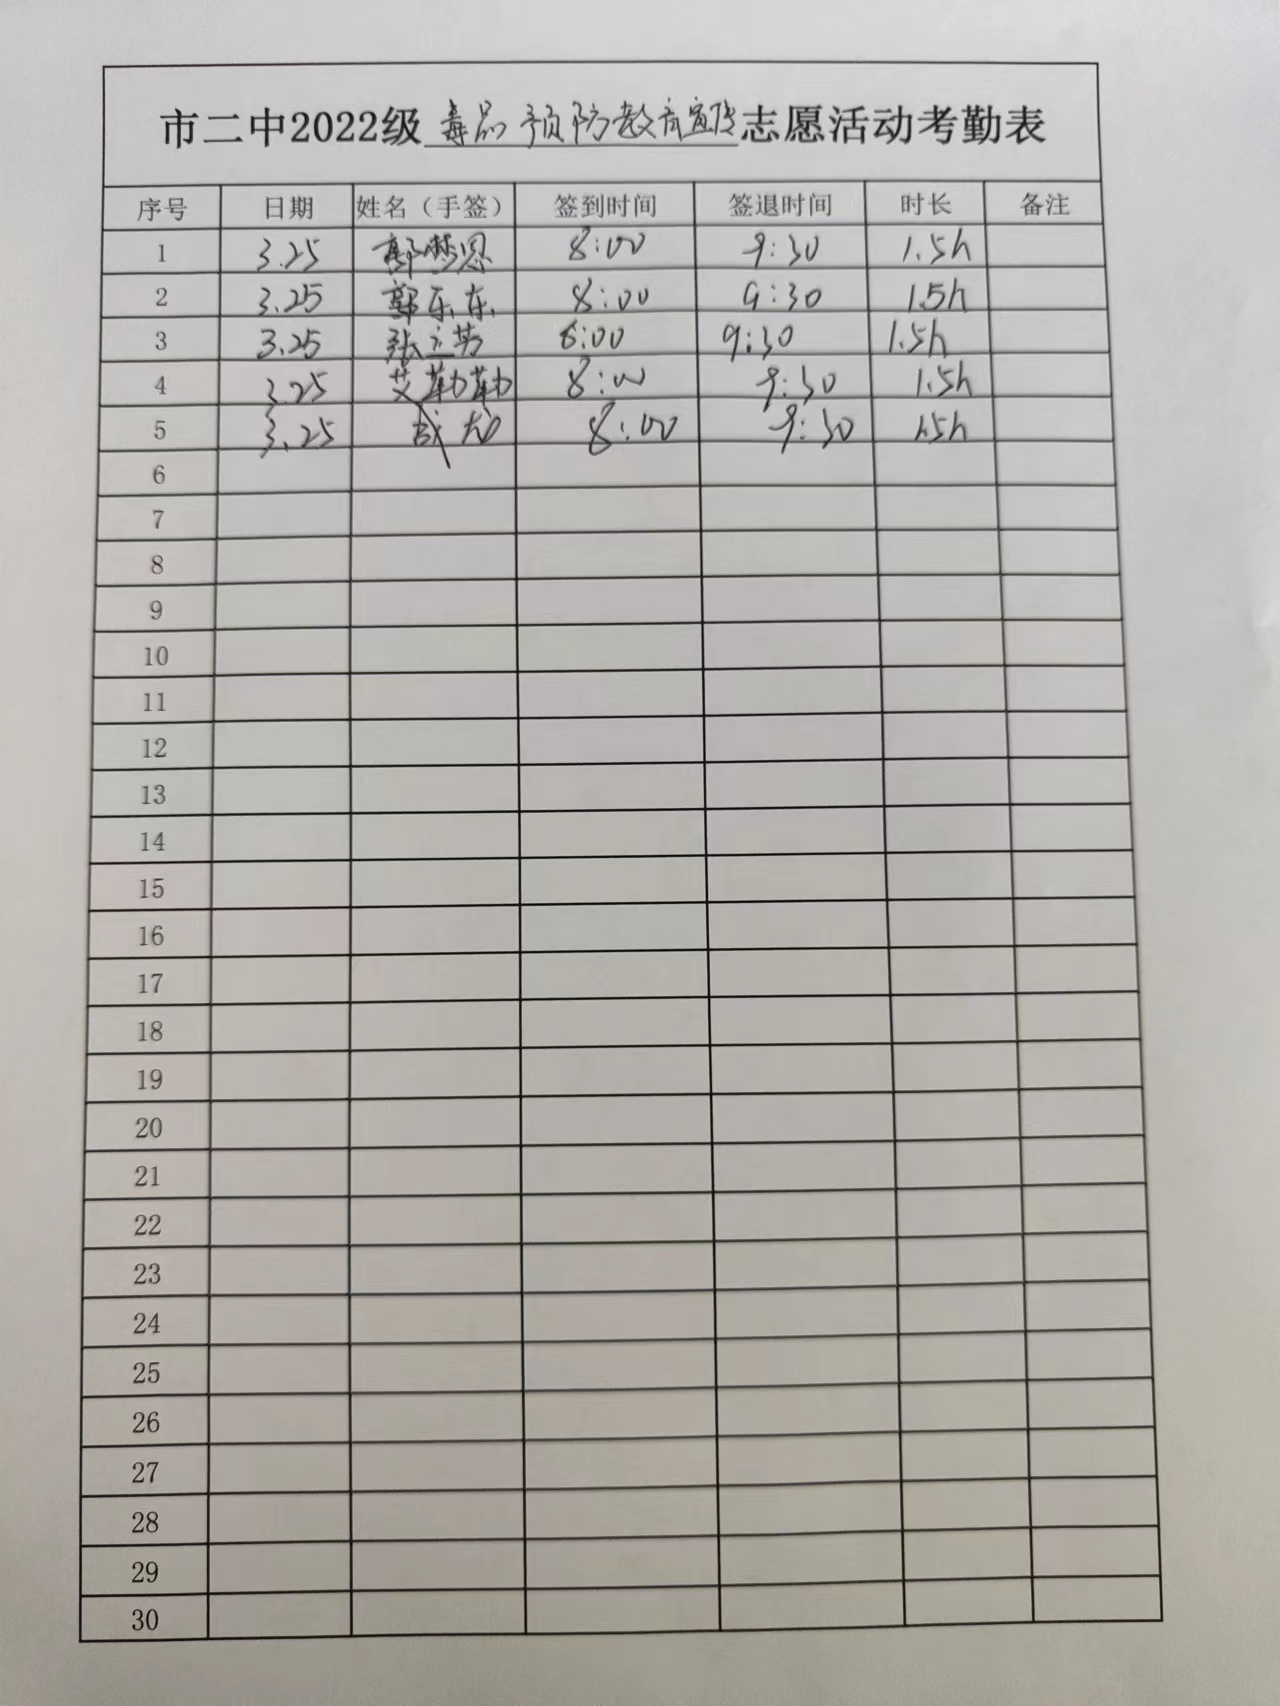 市二中2022级毒品预防教育宣传志愿活动考勤表
序号 日期 姓名（手签） 签到时间 签退时间 时长 备注
1 3.25 郭梦恩 8:00 9:30 1.5h
2 3.25 郭乐东 8:00 9:30 1.5h
3 3.25 张立芳 8:00 9:30 1.5h
4 3.25 艾勤勤 8:00 9:30 1.5h
5 3.25 8:00 9:30 1.5h
6
7
8
9
10
11
12
13
14
15
16
17
18
19
20
21
22
23
24
25
26
27
28
29
30